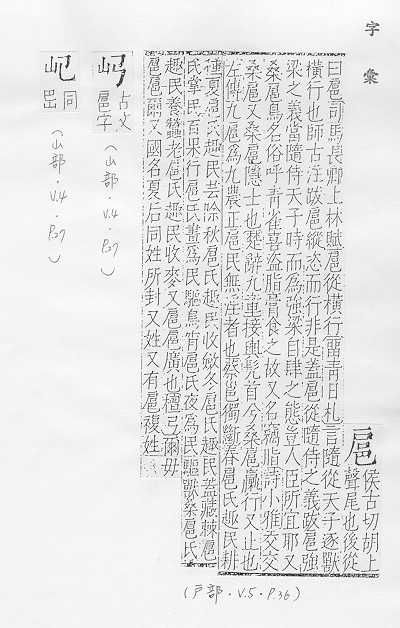 字彙
扈 侯古切胡上
聲尾也後從
曰扈司馬長卿上林賦扈從橫行雷青曰札言隨從天子逐獸
橫行也師古注跋扈縱恣而行非是蓋扈從隨侍之義跋扈強
梁之義當隨侍天子時而爲強梁自肆之態豈人臣所宜耶又
桑扈鳥名俗呼青雀喜盜脂膏食之故又名竊脂詩小雅交交
桑扈又桑扈隱士也楚辭九章接輿髡首兮桑扈臝行又止也
左傳九扈爲九農正扈民無淫者也蔡邕獨斷春扈氏趣民耕
種夏扈氏趣民芸除秋扈氏趣民收斂冬扈氏趣民蓋藏棘扈
氏掌民百果行扈氏晝爲民驅鳥宵扈氏夜爲民驅獸桑扈氏
趣民養蠶老扈氏趣民收麥又扈扈廣也檀弓爾毋
扈扈爾又國名夏后同姓所封又姓又有扈複姓
(戶部.V.5.P.36)
古文
扈字
(山部.V.4.P.27)
同
(山部.V.4.P.27)